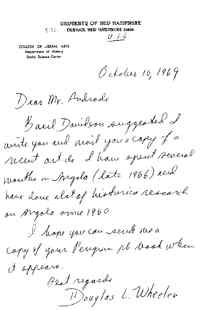 UNIVERSITY OF NEW HAMPSHIRE
DURHAM, NEW HAMPSHIRE 03824
U.S.A.
COLLEGE OF LIBERAL ARTS
Department of History
Social Science Center
October 10, 1969
Dear Mr. Andrade
Basil Davidson suggested I
write you and mail you a copy of a
recent article. I have spent several
months in Angola (late 1966) and
have done a lot of historical research
on Angola since 1960.
I hope you can send me a
copy of your Penguin pb book when
it appears.
Best regards
Douglas L. Wheeler